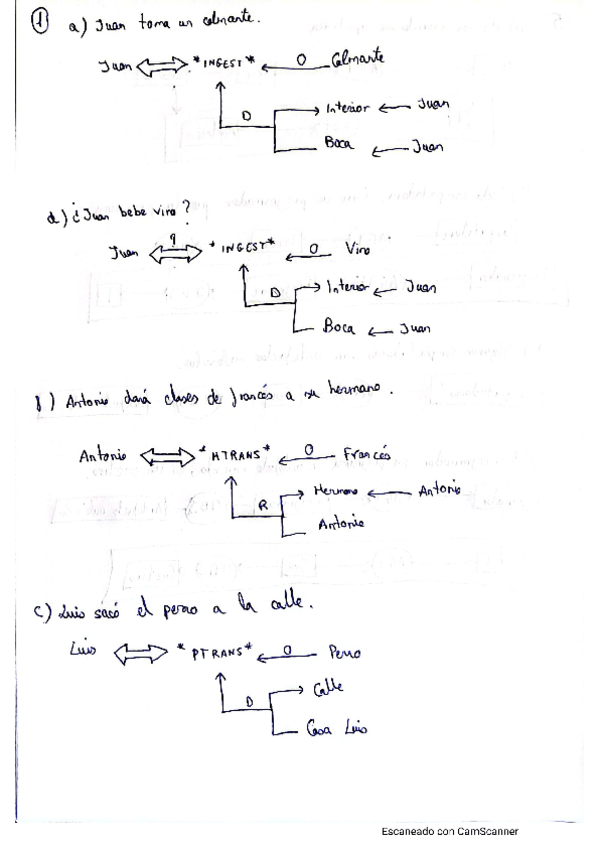 1 a) Juan toma un calmante.
Juan *INGEST* O Calmante
D Interior Juan
Boca Juan
d) ¿Juan bebe vino?
Juan ? *INGEST* O Vino
D Interior Juan
Boca Juan
b) Antonio dará clases de francés a su hermano.
Antonio *MTRANS* O Francés
R Hermano Antonio
Antonio
c) Luis sacó el perro a la calle.
Luis *PTRANS* O Perro
D Calle
Casa Luis
Escaneado con CamScanner